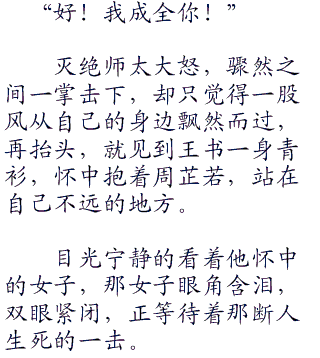 “好！我成全你！”
灭绝师太大怒，骤然之
间一掌击下，却只觉得一股
风从自己的身边飘然而过，
再抬头，就见到王书一身青
衫，怀中抱着周芷若，站在
自己不远的地方。
目光宁静的看着他怀中
的女子，那女子眼角含泪，
双眼紧闭，正等待着那断人
生死的一击。